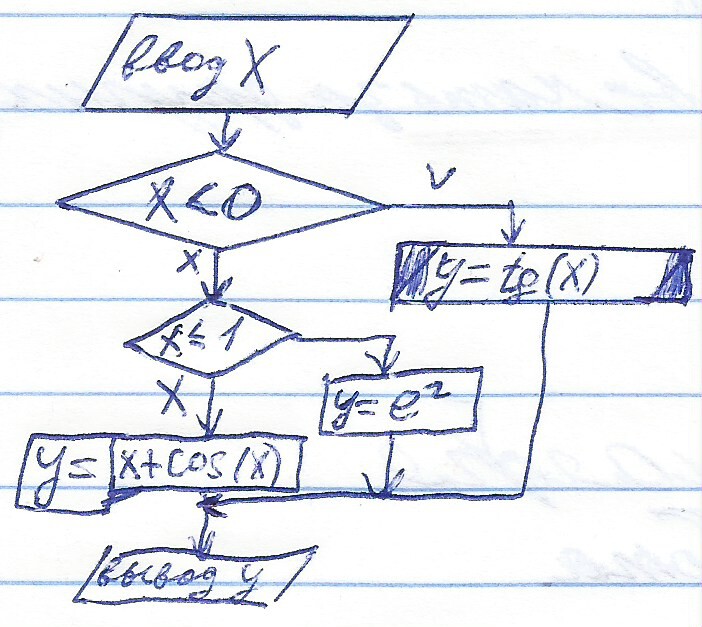 ввод X
X<0
V
X
y=tg(X)
X≤1
X
y=e²
y=x+cos(X)
вывод y